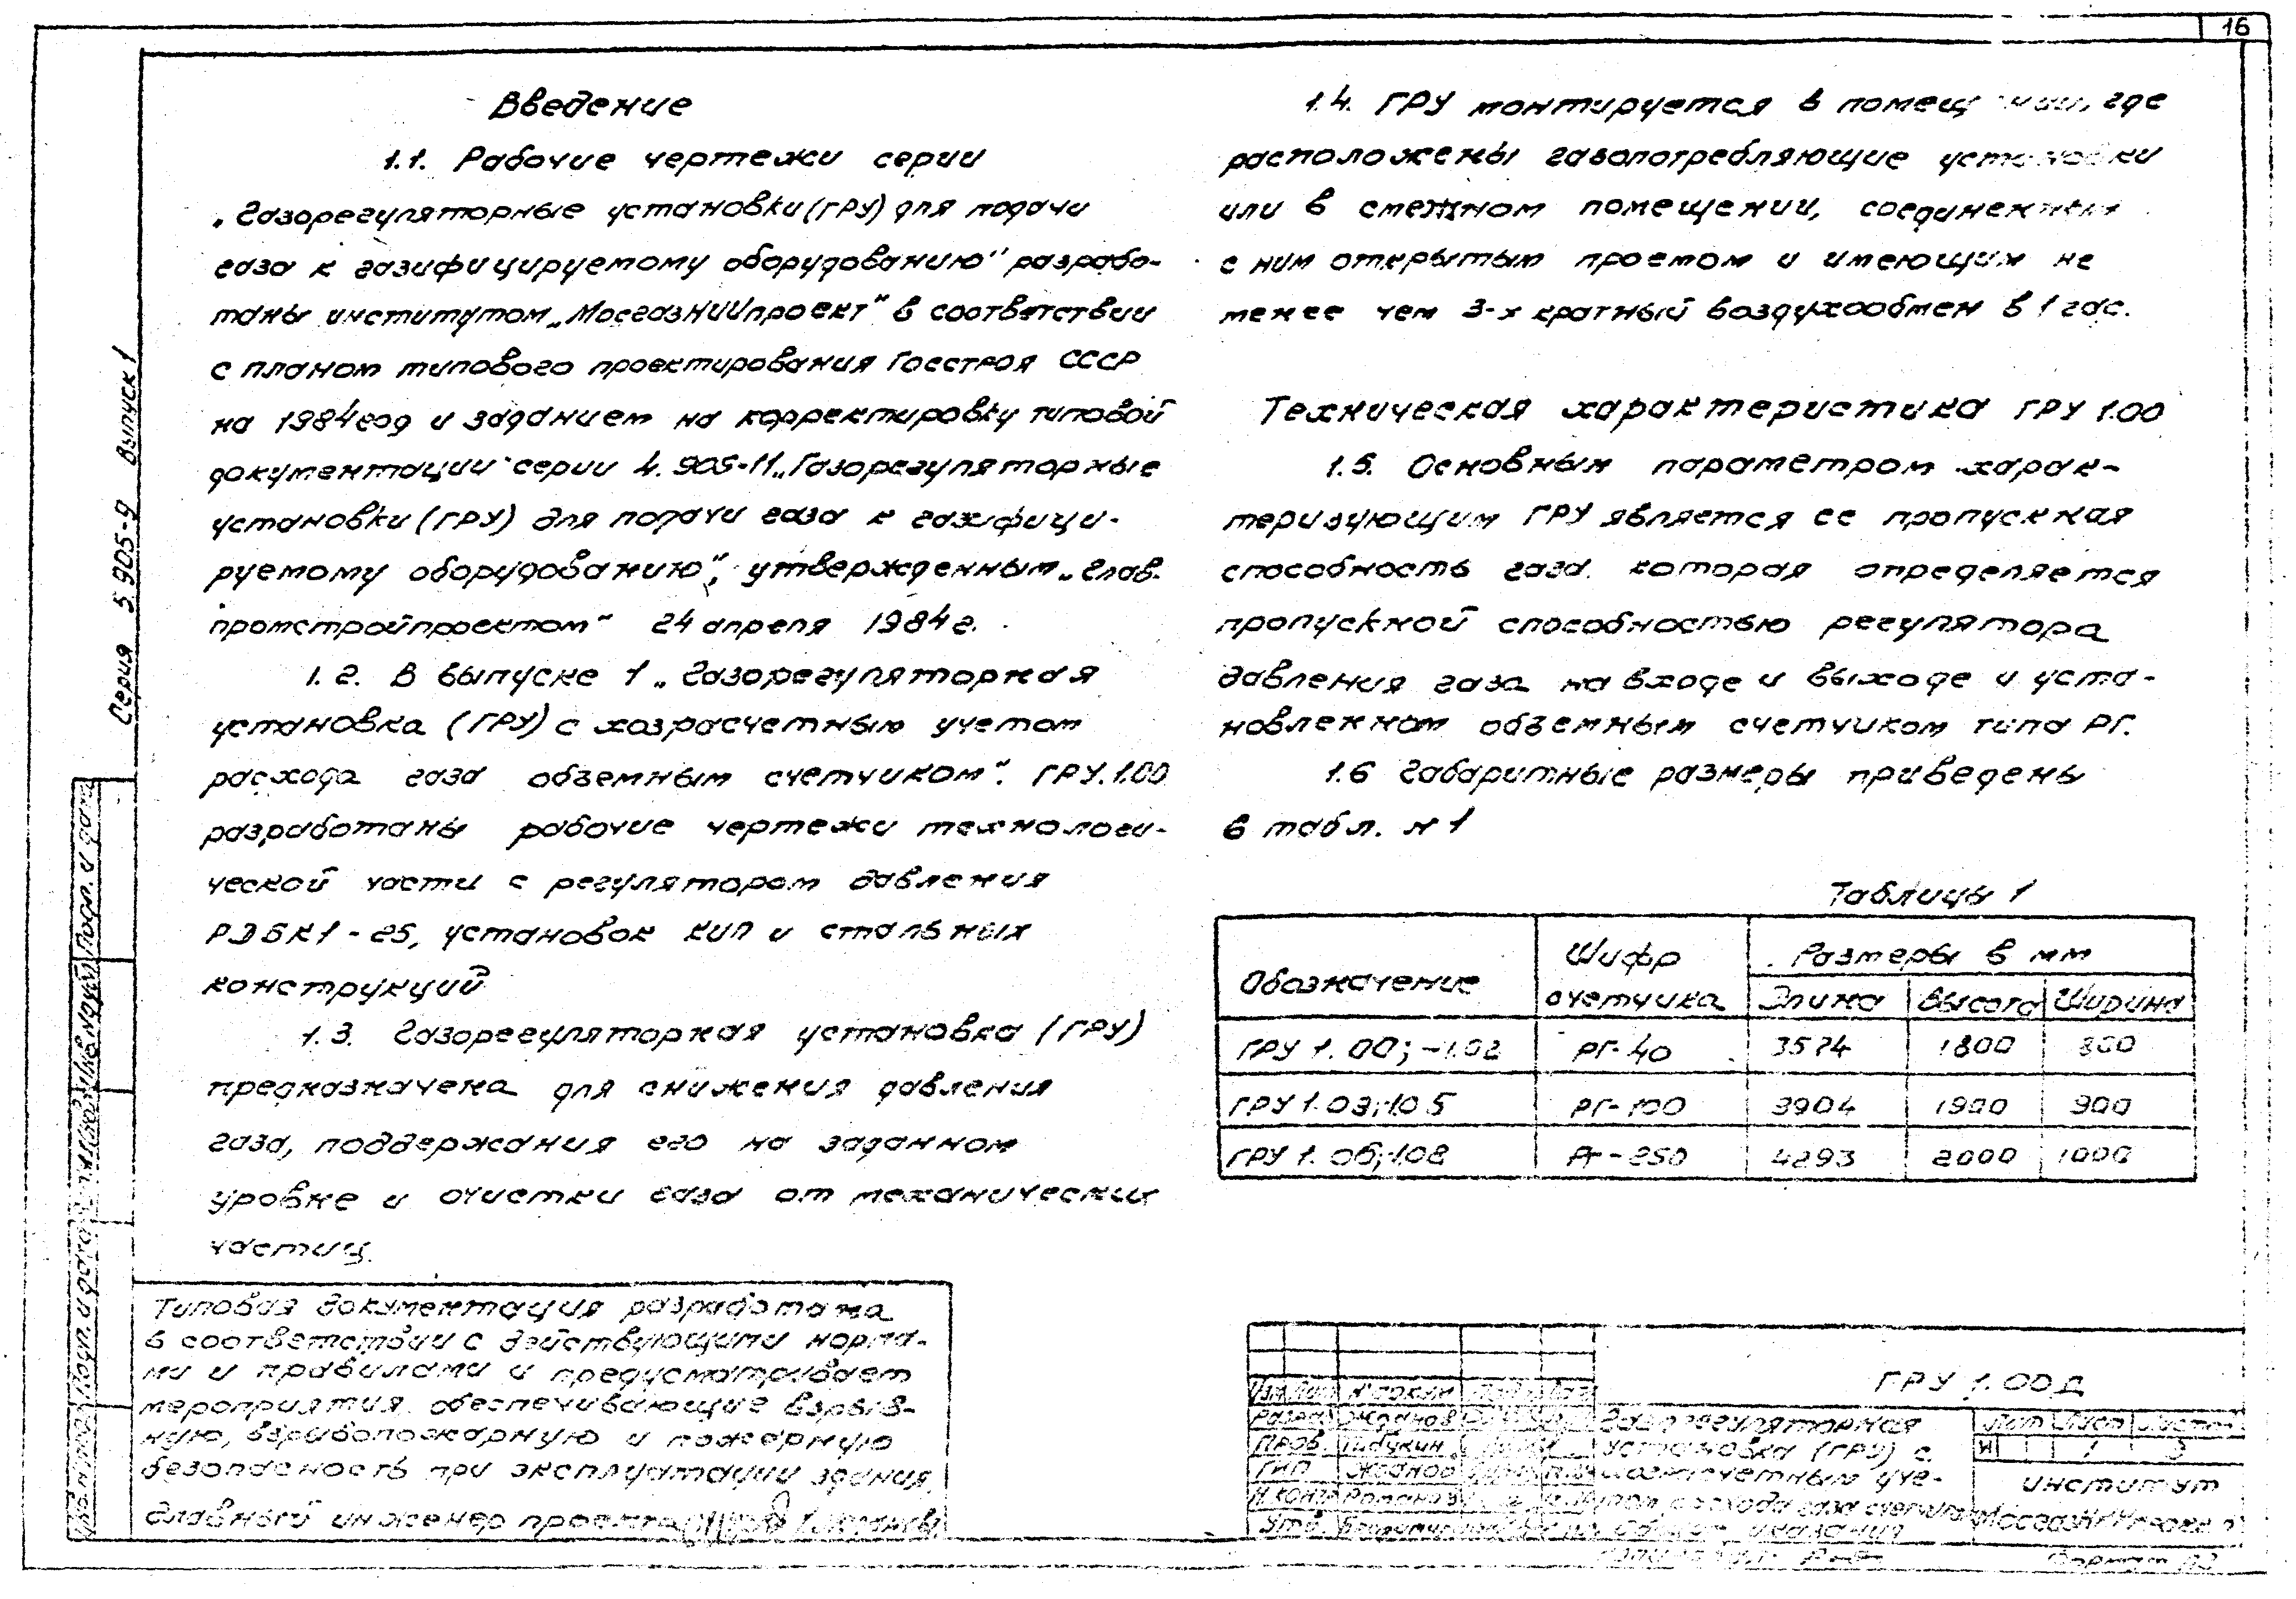 16
Серия 5 905-9 Выпуск 1
Введение
1.1. Рабочие чертежи серии
„Газорегуляторные установки (ГРУ) для подачи
газа к газифицируемому оборудованию" разрабо-
таны институтом „МосгазНИИпроект" в соответствии
с планом типового проектирования Госстроя СССР
на 1984 год и заданием на корректировку типовой
документации серии 4.905-11 „Газорегуляторные
установки (ГРУ) для подачи газа к газифици-
руемому оборудованию", утвержденным „Глав-
промстройпроектом" 24 апреля 1984 г.
1.2. В выпуске 1 „Газорегуляторная
установка (ГРУ) с хозрасчетным учетом
расхода газа обземным счетчиком". ГРУ. 1.00
разработаны рабочие чертежи технологи-
ческой части с регулятором давления
РДБК1-25, установок КИП и стальных
конструкций
1.3. Газорегуляторная установка (ГРУ)
предназначена для снижения давления
газа, поддержания его на заданном
уровне и очистки газа от механических
частиц.
Типовая документация разработана
в соответствии с действующими норма-
ми и правилами и предусматривает
мероприятия, обеспечивающие взрыв-
ную, взрывопожарную и пожарную
безопасность при эксплуатации здания.
Главный инженер проекта
1.4. ГРУ монтируется в где
расположены газопотребляющие установки
или в смежном помещении, соединенным
с ним открытым проемом и имеющим не
менее чем 3-х кратный воздухообмен в 1 час.
Техническая характеристика ГРУ 1.00
1.5. Основным параметром харак-
теризующим ГРУ является ее пропускная
способность газа. которая определяется
пропускной способностью регулятора
давления газа на входе и выходе и уста-
новленном обземным счетчиком типа РГ.
1.6 Габаритные размеры приведены
в табл. N 1
Таблицы 1
Обозначение Шифр счетчика Размеры в мм
Длина Высота Ширина
ГРУ 1.00; -1.02 РГ-40 3574 1800 800
ГРУ 1.03; -1.05 РГ-100 3904 1900 900
ГРУ 1.06; -1.08 РГ-250 4293 2000 1000
ГРУ 1.00 Д
Разраб. Жданов
Пров.
ГИП Жданов
Н.контр. Романов
Утв.
Газорегуляторная
установка (ГРУ) с
хозрасчетным уче-
том расхода газа
Лит Лист Листов
И 1 3
институт
МосгазНИИпроект
Формат А3